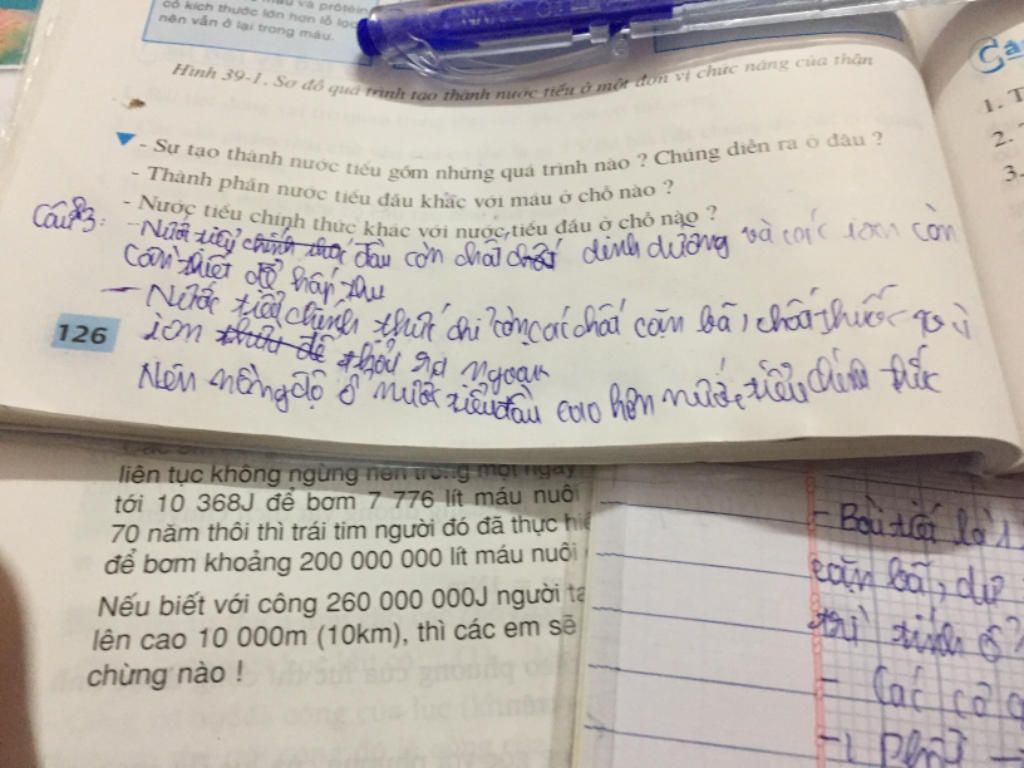 và protêin
có kích thước lớn hơn lỗ lọc
nên vẫn ở lại trong máu.
Hình 39-1. Sơ đồ quá trình tạo thành nước tiểu ở một đơn vị chức năng của thận
- Sự tạo thành nước tiểu gồm những quá trình nào ? Chúng diễn ra ở đâu ?
- Thành phần nước tiểu đầu khác với máu ở chỗ nào ?
- Nước tiểu chính thức khác với nước tiểu đầu ở chỗ nào ?
Câu 3: - Nước tiểu chính thức đầu còn chất chất dinh dưỡng và các ion còn
cần thiết để hấp thu
- Nước tiểu chính thức chỉ còn các chất cặn bã, chất thuốc
ion để thải ra ngoài
Nên nồng độ ở nước tiểu đầu cao hơn nước tiểu chính thức
126
liên tục không ngừng nên trong một ngày
tới 10 368J để bơm 7 776 lít máu nuôi
70 năm thôi thì trái tim người đó đã thực hiệ
để bơm khoảng 200 000 000 lít máu nuôi
Nếu biết với công 260 000 000J người ta
lên cao 10 000m (10km), thì các em sẽ
chừng nào !
Câ
1. T
2.
3.
- Bài tiết là 1
cặn bã, dư
trì tính ổ
- Các cơ q